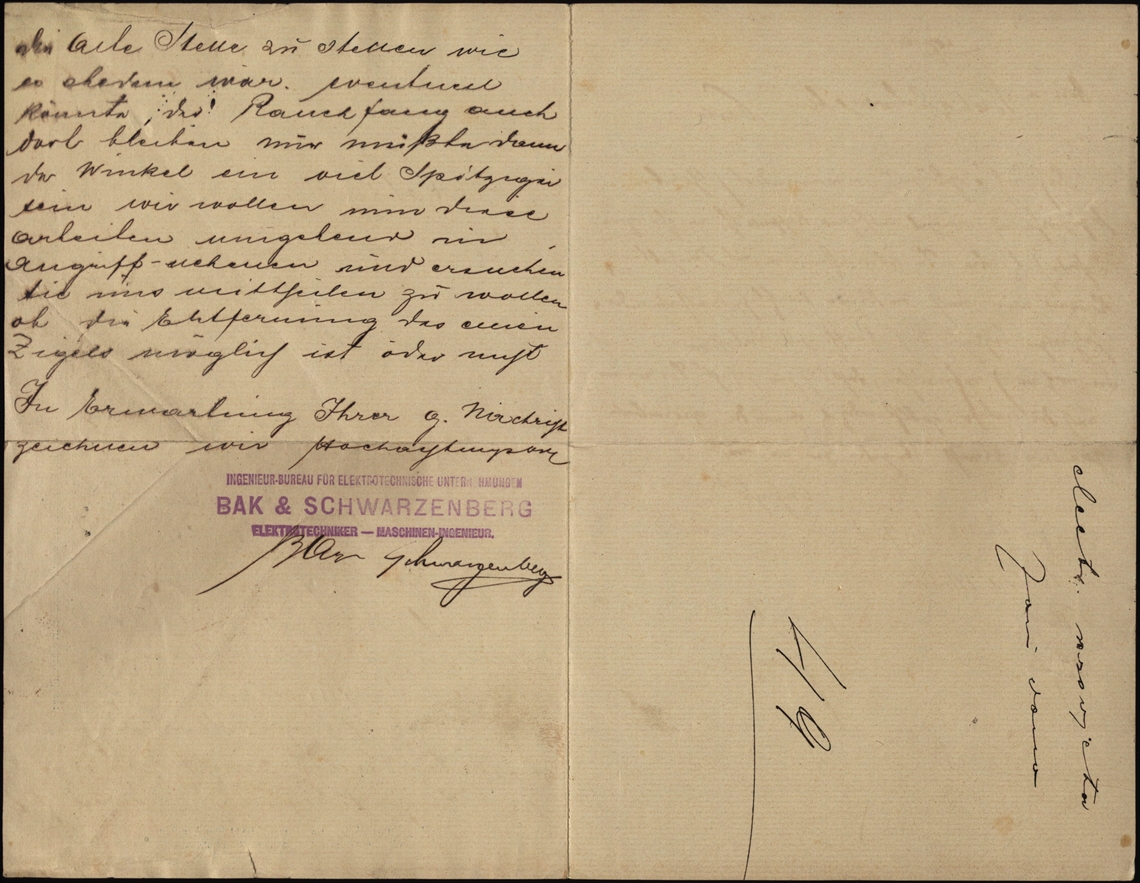 die alte Stelle zu stellen wie
es ehedem war. eventuel
könnte, der Rauchfang auch
dort bleiben nur müßte dann
der Winkel ein viel Spitziger
sein wir wollen nun diese
Arbeiten umgehend in
Angriff-nehmen und ersuchen
Sie uns mittheilen zu wollen
ob die Entfernung des einen
Zigels möglich ist oder nicht
In Erwartung Ihrer g. Nachricht
zeichnen wir Hochachtungsvoll
INGENIEUR-BUREAU FÜR ELEKTROTECHNISCHE UNTERNEHMUNGEN
BAK & SCHWARZENBERG
ELEKTROTECHNIKER — MASCHINEN-INGENIEUR.
Bak Schwarzenberg
electr.